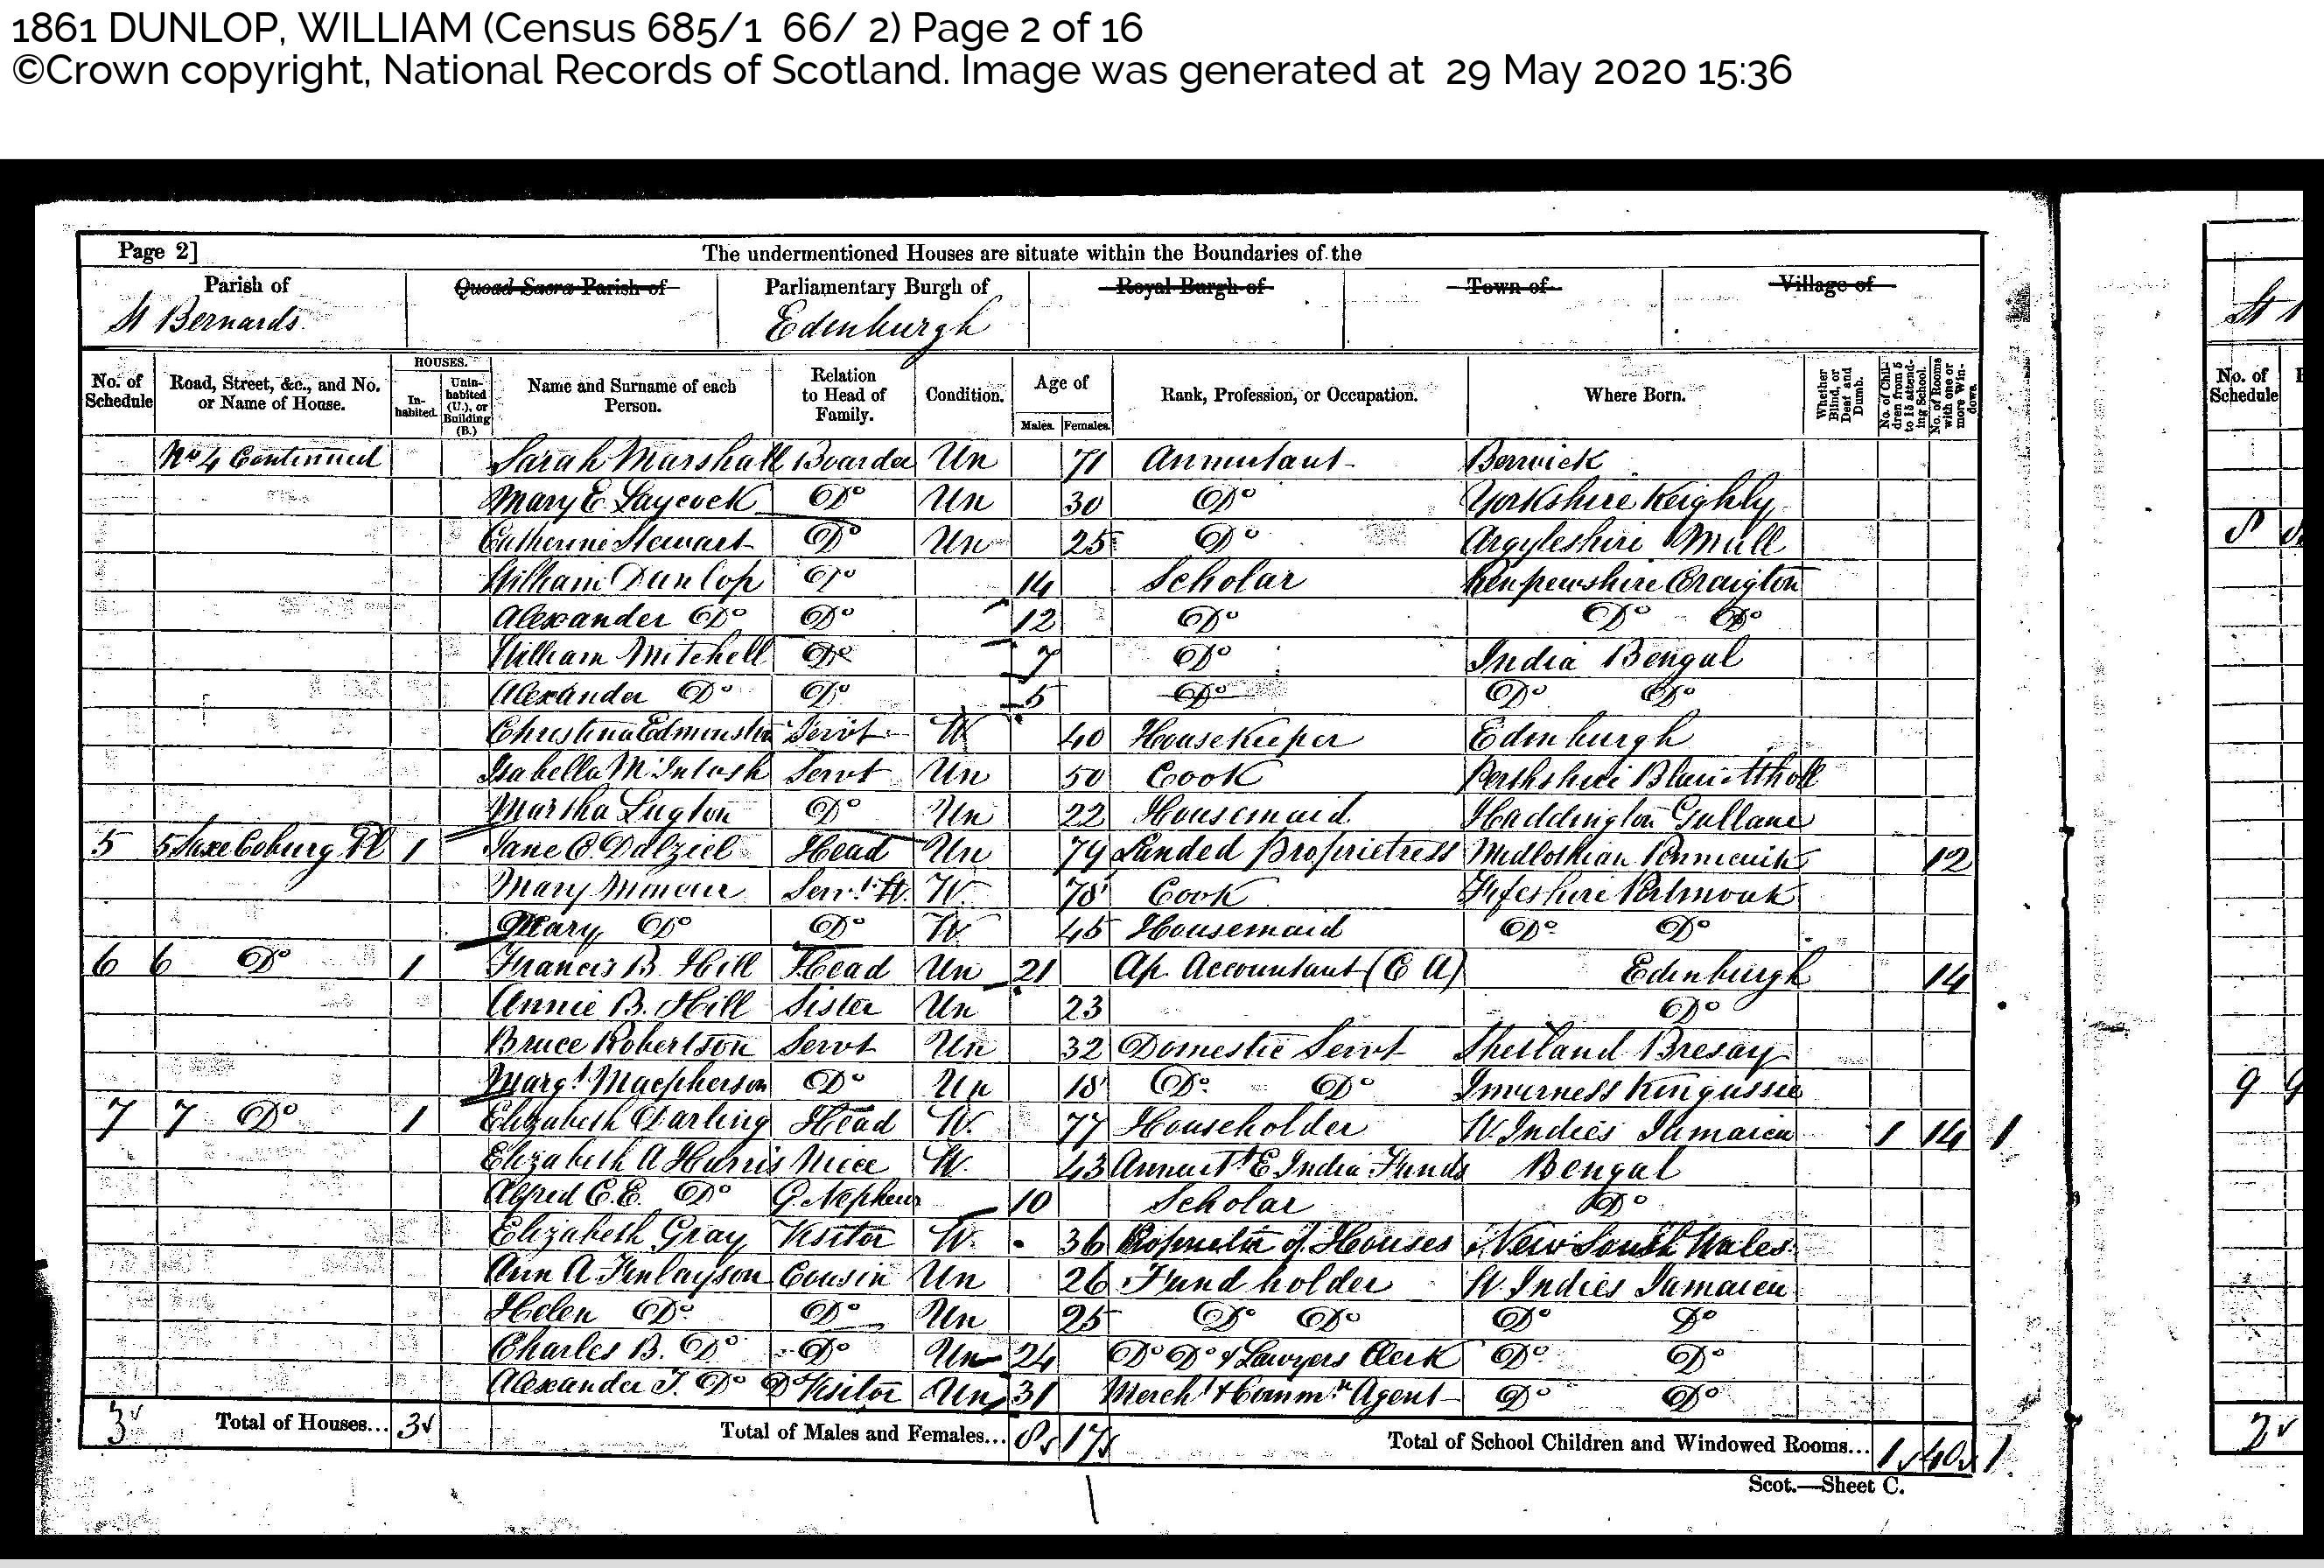 1861 DUNLOP, WILLIAM (Census 685/1 66/ 2) Page 2 of 16
©Crown copyright, National Records of Scotland. Image was generated at 29 May 2020 15:36
Page 2] The undermentioned Houses are situate within the Boundaries of the
Parish of Quoad Sacra Parish of Parliamentary Burgh of Royal Burgh of Town of Village of
St Bernards Edinburgh
No. of Schedule Road, Street, &c., and No. or Name of House. HOUSES. Inhabited. Uninhabited (U.), or Building (B.) Name and Surname of each Person. Relation to Head of Family. Condition. Age of Males. Females. Rank, Profession, or Occupation. Where Born. Whether Blind, or Deaf and Dumb. No. of Children from 5 to 15 attending School. No. of Rooms with one or more Windows.
No 4 Continued Sarah Marshall Boarder Un 71 Annuitant Berwick
Mary E. Laycock Do Un 30 Do Yorkshire Keighly
Catherine Stewart Do Un 25 Do Argyleshire Mull
William Dunlop Do 14 Scholar Renfrewshire Craigton
Alexander Do Do 12 Do Do Do
William Mitchell Do 7 Do India Bengal
Alexander Do Do 5 Do Do Do
Christina Edmonston Servt W 40 Housekeeper Edinburgh
Isabella McIntosh Servt Un 50 Cook Perthshire Blair Atholl
Martha Lugton Do Un 22 Housemaid Haddington Gullane
5 5 Saxe Coburg Pl 1 Jane C. Dalziel Head Un 79 Landed Proprietress Midlothian Pennicuik 12
Mary Servt W. 78 Cook Fifeshire
Mary Do Do W 45 Housemaid Do Do
6 6 Do 1 Francis B. Hill Head Un 21 Ap. Accountant (C A) Edinburgh 14
Annie B. Hill Sister Un 23 Do
Bruce Robertson Servt Un 32 Domestic Servt Shetland Bresay
Margt Macpherson Do Un 18 Do Do Inverness Kingussie
7 7 Do 1 Elizabeth Darling Head W. 77 Householder W. Indies Jamaica 1 14 1
Elizabeth A Harris Niece W. 43 Annuitt E India Funds Bengal
Alfred C.E. Do G. Nephew 10 Scholar Do
Elizabeth Gray Visitor W. 36 Proprietor of Houses New South Wales
Ann A Finlayson Cousin Un 26 Fund holder W. Indies Jamaica
Helen Do Do Un 25 Do Do Do Do
Charles B. Do Do Un 24 Do Do & Lawyers Clerk Do Do
Alexander T. Do Do Visitor Un 31 Mercht & Commn Agent Do Do
3 Total of Houses... 3 Total of Males and Females... 8 17 Total of School Children and Windowed Rooms... 1 40 1
Scot.—Sheet C.
No. of Schedule
St
8
9 9
2